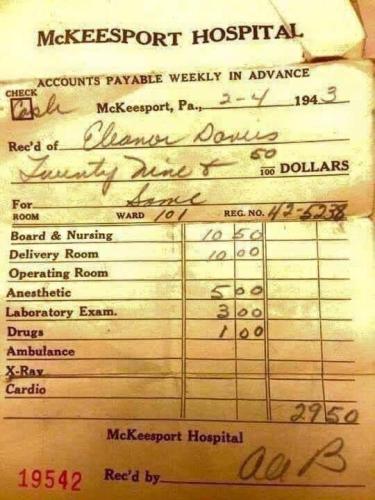 McKEESPORT HOSPITAL
ACCOUNTS PAYABLE WEEKLY IN ADVANCE
CHECK
Cash McKeesport, Pa., 2-4 1943
Rec'd of Eleanor Davis
Twenty Nine & 50/100 DOLLARS
For Same
ROOM WARD 101 REG. NO. 42-5238
Board & Nursing 10 50
Delivery Room 10 00
Operating Room
Anesthetic 5 00
Laboratory Exam. 3 00
Drugs 1 00
Ambulance
X-Ray
Cardio
29 50
McKeesport Hospital
19542 Rec'd by